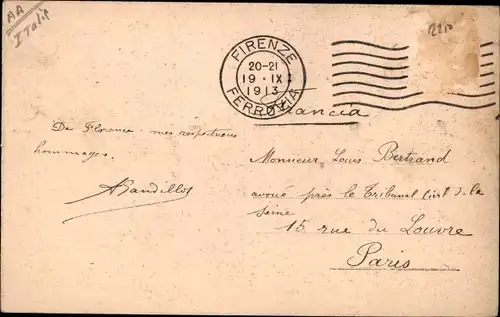 AA
Italie
2210
FIRENZE
20-21
19·IX
1913
FERROVIA
Francia
De Florence mes respectueux
hommages.
Monsieur Louis Bertrand
avoué près le Tribunal Civil de la
Seine
15 rue du Louvre
Paris